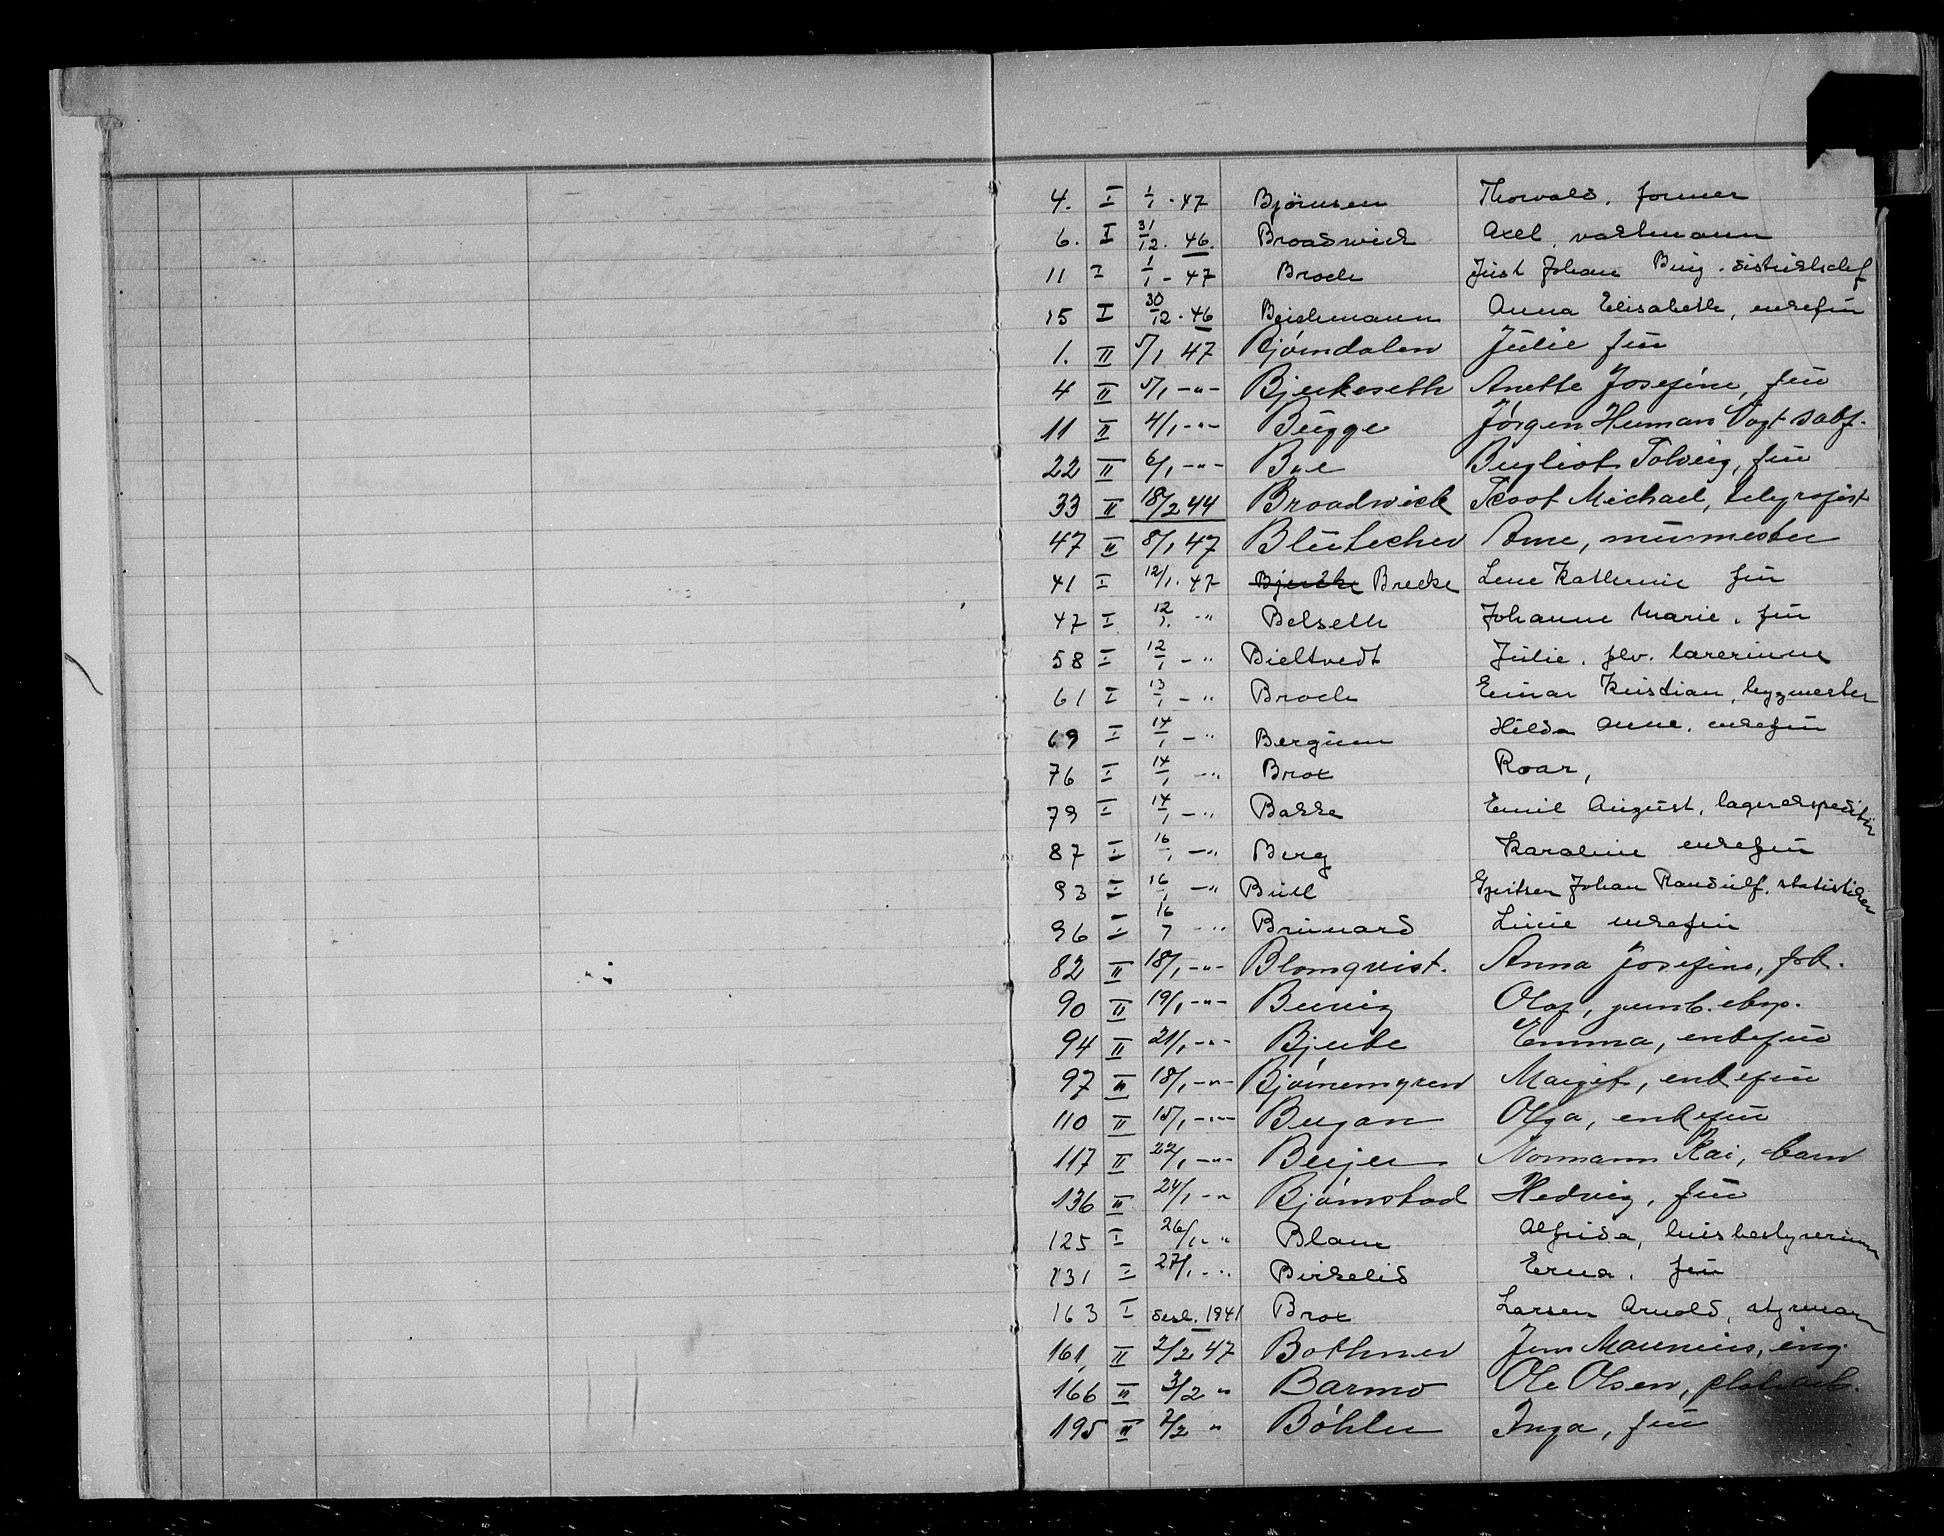 4. I 1/1 - 47 Bjørnsen Thorvald, former
6. I 31/12. 46. Broadwick Axel, vaktmann
11 I 1/1 - 47 Broch Just Johan Bing. distriktschef
15 I 30/12 - 46 Beichmann Anna Elisabeth, enkefru
1. II 5/1 47 Bjørndalen Julie fru
4 II 5/1 -"- Bjerkeseth Anette Josefine, fru
11 II 4/1 -"- Bugge Jørgen Herman Vogt
22 II 6/1 -"- Bae Bergliot Solveig, fru
33 II 18/2 44 Broadwick Scoot Michael, telegrafist
47 II 8/1 47 Blütecher Arne, murmester
41 I 12/1. 47 Bjerke Brecke Lene Katherine fru
47 I 12/1. -" Belseth Johanne Marie, fru
58 I 12/1 -" Bieltvedt Julie. flv. lærerinne
61 I 13/1 -" Broch Einar Kristian, byggmester
69 I 14/1 -" Bergum Hilda Anne, enkefru
76 I 14/1 -" Brox Roar,
79 I 14/1 -" Bakke Emil August, lagerekspeditør
87 I 16/1 -" Berg Karoline enkefru
93 I 16/1 -" Bull Gjertsen Johan Randulf. statistiker
96 I 16/7 -" Brunard Linie enkefru
82 II 18/1 -"- Blomqvist. Anna Josefine, frk.
90 II 19/1 -"- Bervig Olaf, jernb. eksp.
94 II 21/1 -"- Bjerke Emma, enkefru
97 II 18/1 -"- Bjørnemyren Margit, enkefru
110 II 15/1 -"- Bergan Olga, enkefru
117 II 22/1 -"- Beijer Normann Kai, barn
136 II 24/1 -" Bjørnstad Hedvig, fru
125 I 26/1 -" Blom Alfrida, husbestyrerinne
131 I 27/1 -" Birkelid Erna, fru
163 I des. 1941 Brox Larsen Arnold, styrmann
161, II 2/2 47 Bothner Jens Maurius, ing.
166 II 3/2 " Barmo Ole Olsen, platearb.
195 II 7/2 " Bøhler Inga, fru